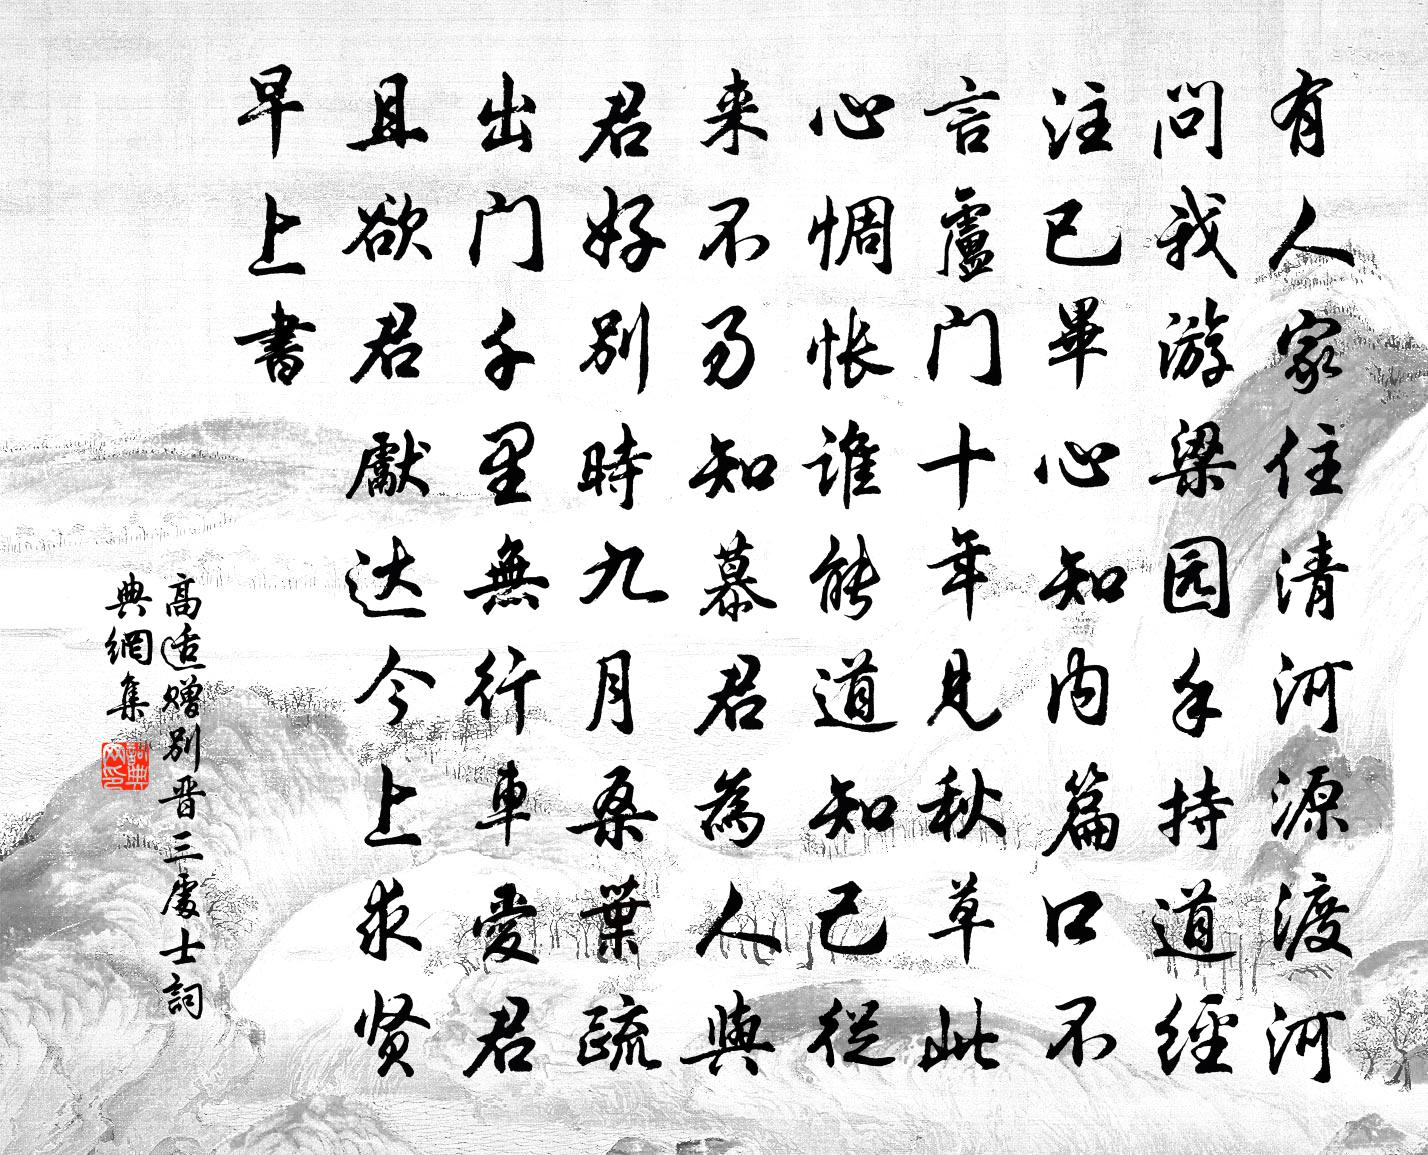 有人家住清河源渡河
问我游梁园手持道經
注已畢心知内篇口不
言盧门十年見秋草此
心惆怅谁能道知己從
来不易知慕君為人與
君好别時九月桑葉疏
出门千里無行車愛君
且欲君獻达今上求贤
早上書
高适赠别晋三處士詞
典網集
詞典网印